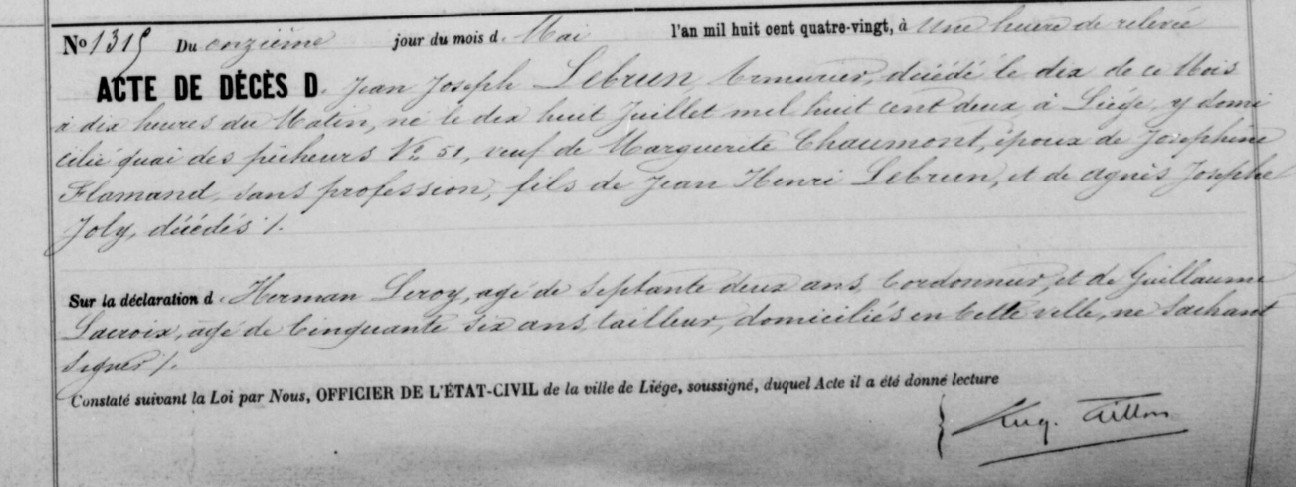 N° 1315 Du onzième jour du mois d. Mai l'an mil huit cent quatre-vingt, à Une heure de relevée
ACTE DE DÉCÈS D. Jean Joseph Lebrun, Armurier, décédé le dix de ce Mois
à dix heures du Matin, né le dix huit Juillet mil huit cent deux, à Liége, y domi
cilié quai des pêcheurs N° 51, veuf de Marguerite Chaumont, époux de Josephine
Flamand, sans profession, fils de Jean Henri Lebrun, et de Agnès Josephe
Joly, décédés /.
Sur la déclaration d. Herman Leroy, agé de Septante deux ans, Cordonnier, et de Guillaume
Lacroix, agé de Cinquante six ans, tailleur, domiciliés en Cette ville, ne Sachant
Signer /.
Constaté suivant la Loi par Nous, OFFICIER DE L'ÉTAT-CIVIL de la ville de Liége, soussigné, duquel Acte il a été donné lecture